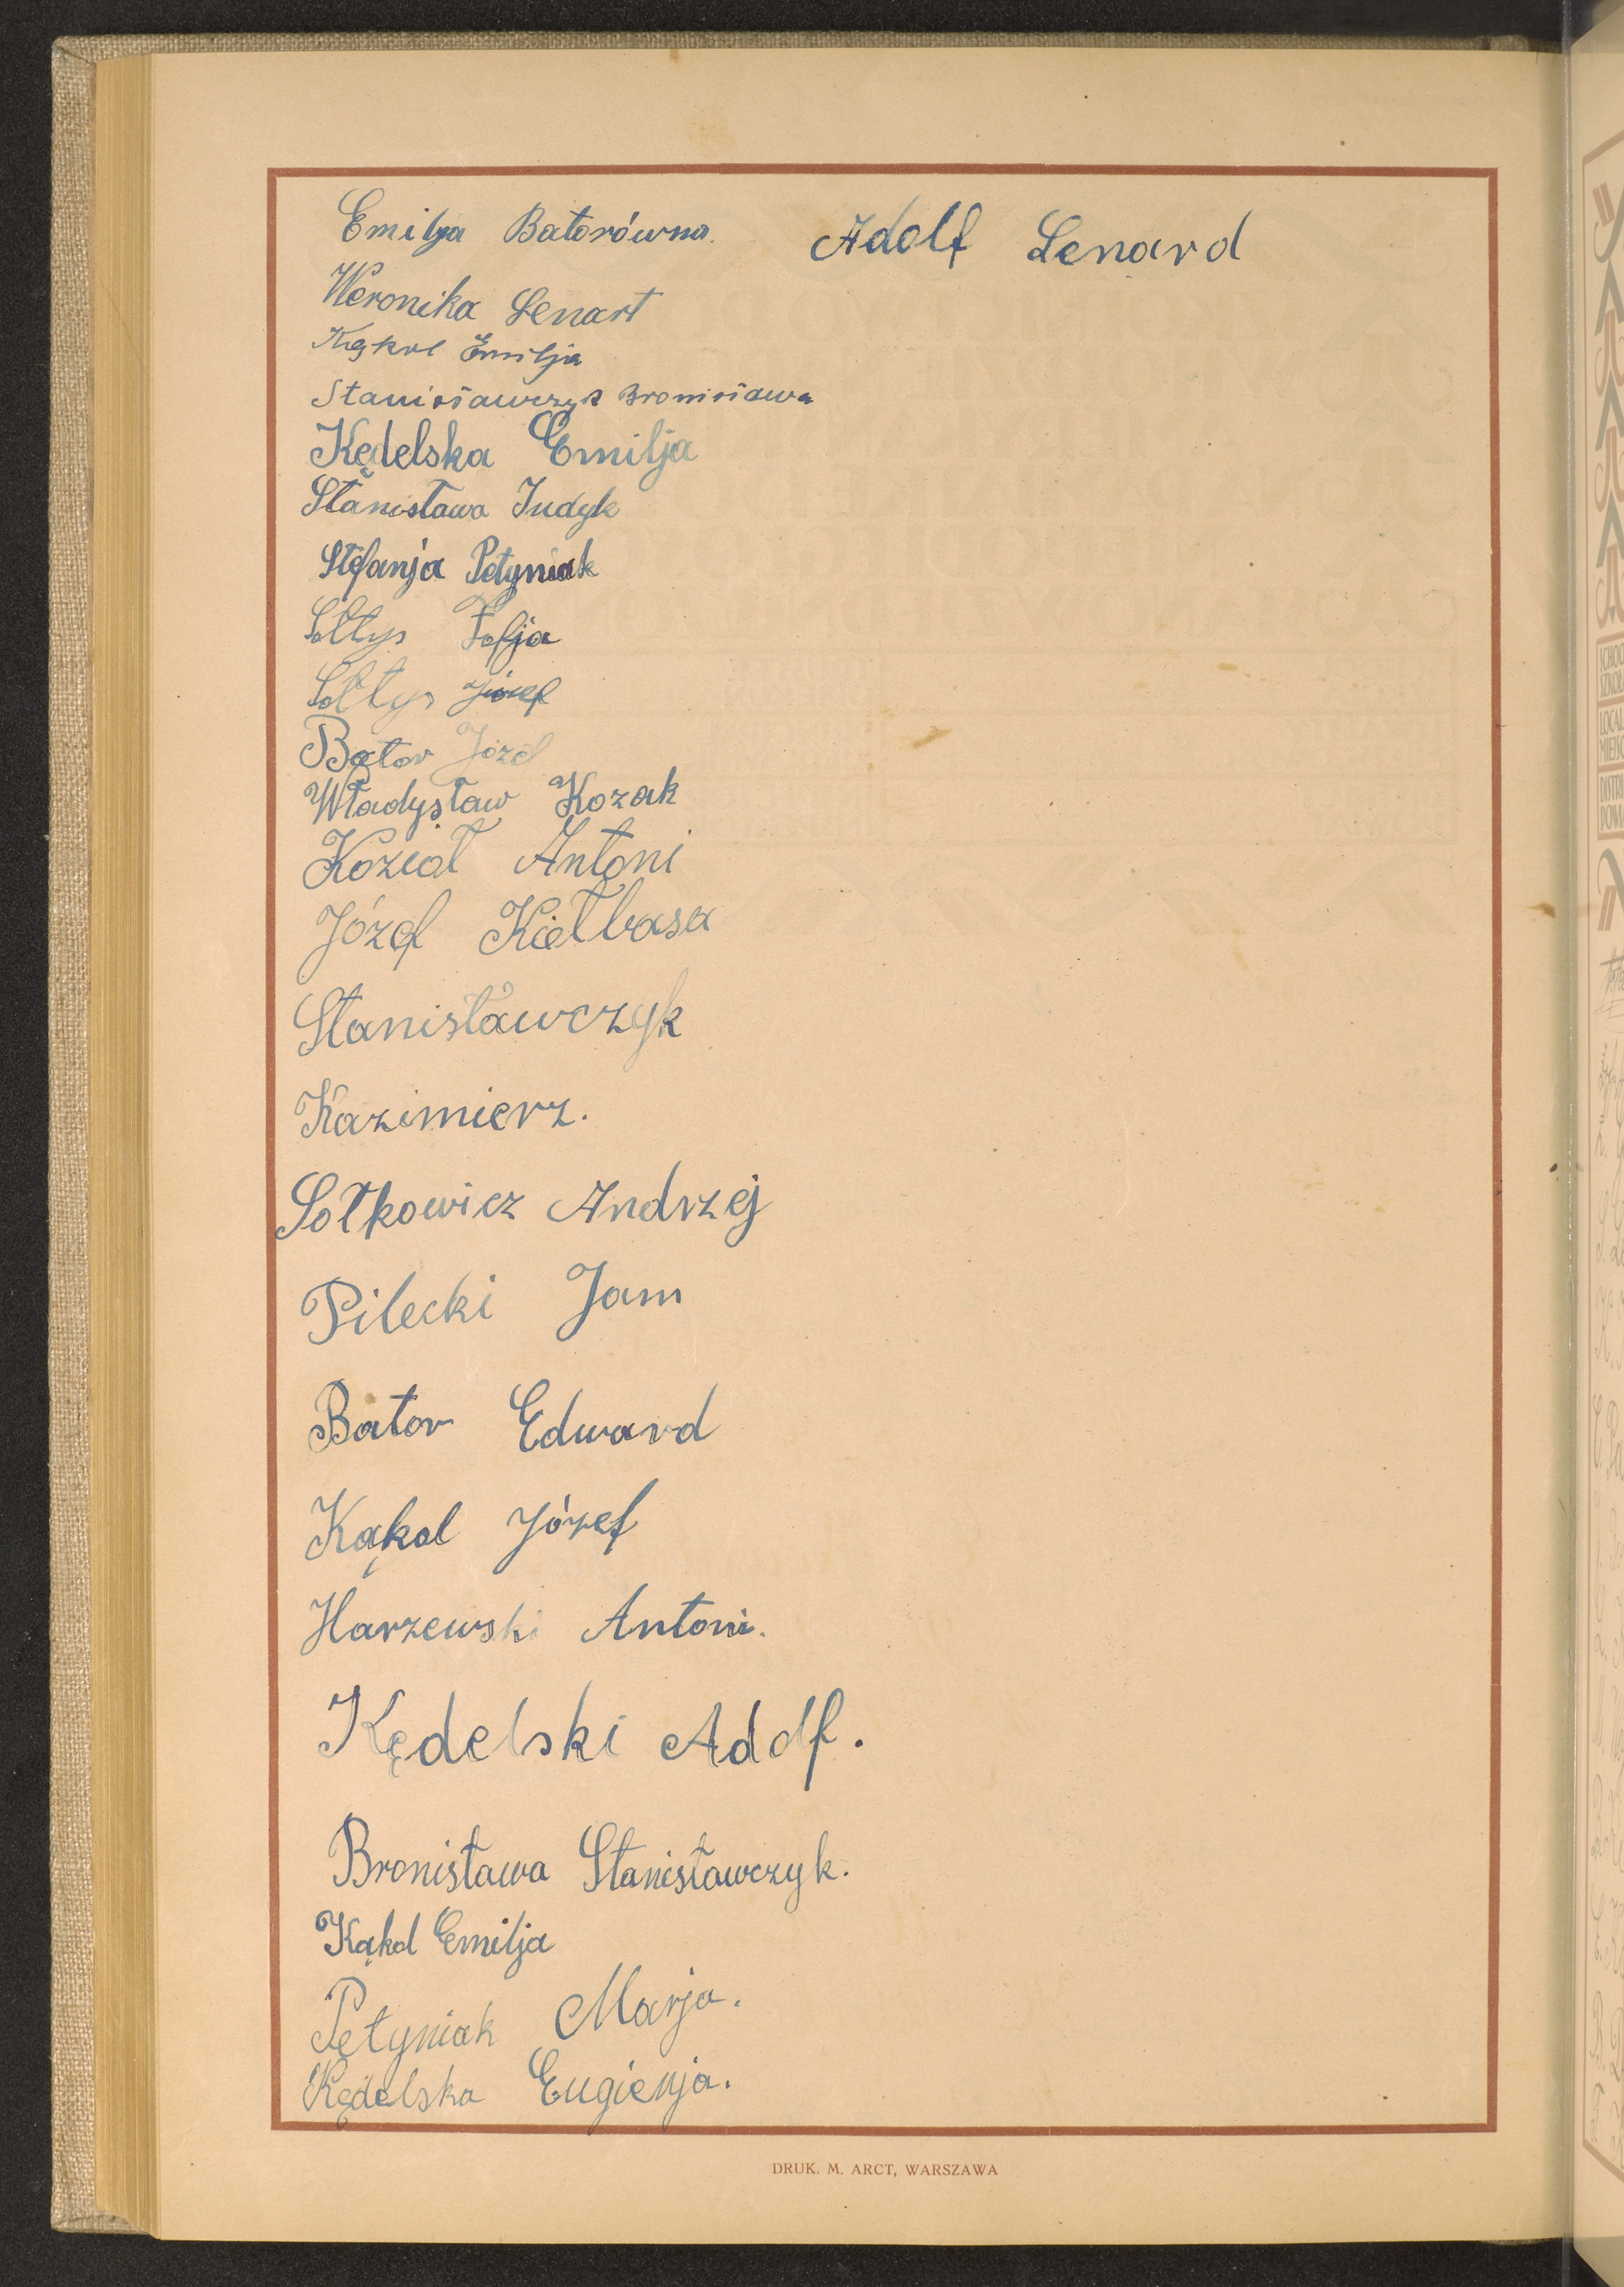 Emilja Batorówna.
Adolf Lenard
Weronika Lenart
Kąkol Emilja
Stanisławczyk Bronisława
Kędelska Emilja
Stanisława Indyk
Stefanja Petyniak
Sołtys Zofja
Sołtys Józef
Bator Józef
Władysław Kozak
Kozioł Antoni
Józef Kiełbasa
Stanisławczyk
Kazimierz.
Sołkowicz Andrzej
Pilecki Jan
Bator Edward
Kąkol Józef
Harzewski Antoni.
Kędelski Adolf.
Bronisława Stanisławczyk.
Kąkol Emilja
Petyniak Marja.
Kędelska Eugienja.
DRUK. M. ARCT, WARSZAWA